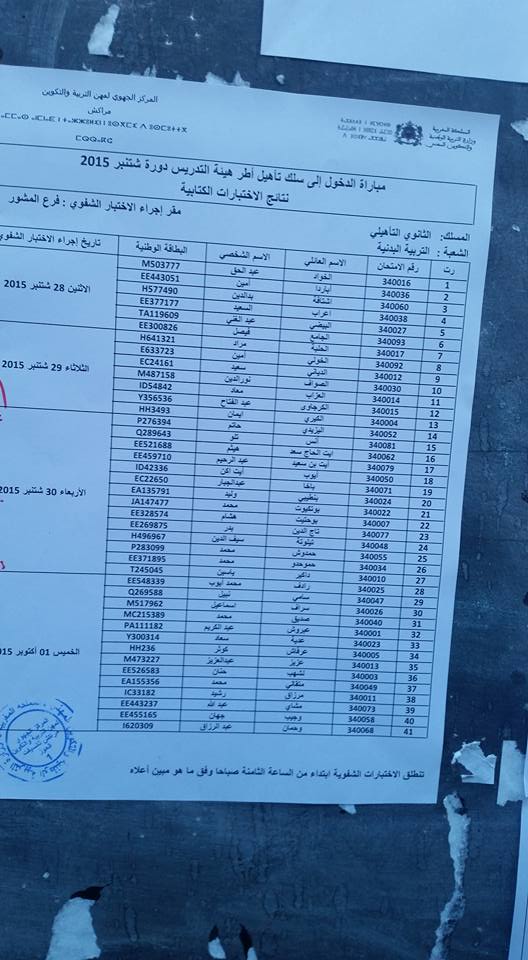 المملكة المغربية
وزارة التربية الوطنية
والتكوين المهني
المركز الجهوي لمهن التربية والتكوين
مراكش
مباراة الدخول إلى سلك تأهيل أطر هيئة التدريس دورة شتنبر 2015
نتائج الاختبارات الكتابية
المسلك: الثانوي التأهيلي
الشعبة : التربية البدنية
مقر إجراء الاختبار الشفوي : فرع المشور
رت رقم الامتحان الاسم العائلي الاسم الشخصي البطاقة الوطنية تاريخ إجراء الاختبار الشفوي
1 340016 الخواد عبد الحق M503777
2 340036 أباردا أمين EE443051
3 340060 اشتاقة بدالدين H577490
4 340038 اعراب السعيد EE377177
5 340027 البيضي عبد الغني TA119609
6 340093 الجامع فيصل EE300826
7 340017 مراد H641321
8 340092 الخولي أمين E633723
9 340012 الدياني سعيد EC24161
10 340030 الصواف نورالدين M487158
11 340014 العزاب معاد ID54842
12 340015 الكرجاوي عبد الفتاح Y356536
13 340004 الكبيري ايمان HH3493
14 340052 اليزيدي حاتم P276394
15 340081 أنس Q289643
16 340062 ايت الحاج سعد هيثم EE521688
17 340079 أيت بن سعيد عبد الرحيم EE459710
18 340050 أيوب أيت اكن ID42336
19 340071 باخا عبدالجبار EC22650
20 340024 بنطيبي وليد EA135791
21 340022 بونكيوت محمد JA147477
22 340007 بوحتيت هشام EE328574
23 340077 تاج الدين بدر EE269875
24 340048 تيلوتة سيف الدين H496967
25 340055 حمدوش محمد P283099
26 340034 حموحدو محمد EE371895
27 340010 داكير ياسين T245045
28 340025 رادف محمد أيوب EE548339
29 340047 سامي نبيل Q269588
30 340026 سراف اسماعيل M517962
31 340040 صديق محمد MC215389
32 340001 عبروش عبد الكريم PA111182
33 340023 عدية سعاد Y300314
34 340005 عرفاش كوثر HH236
35 340013 عزيز عبدالعزيز M473227
36 340003 لشهب حنان EE526583
37 340049 متقاني محمد EA155356
38 340011 مرزاق رشيد IC33182
39 340073 مشاي عبد الله EE443237
40 340058 وجيب جهان EE455165
41 340068 وحمان عبد الرزاق I620309
الاثنين 28 شتنبر 2015
الثلاثاء 29 شتنبر 2015
الأربعاء 30 شتنبر 2015
الخميس 01 أكتوبر 2015
تنطلق الاختبارات الشفوية ابتداء من الساعة الثامنة صباحا وفق ما هو مبين أعلاه